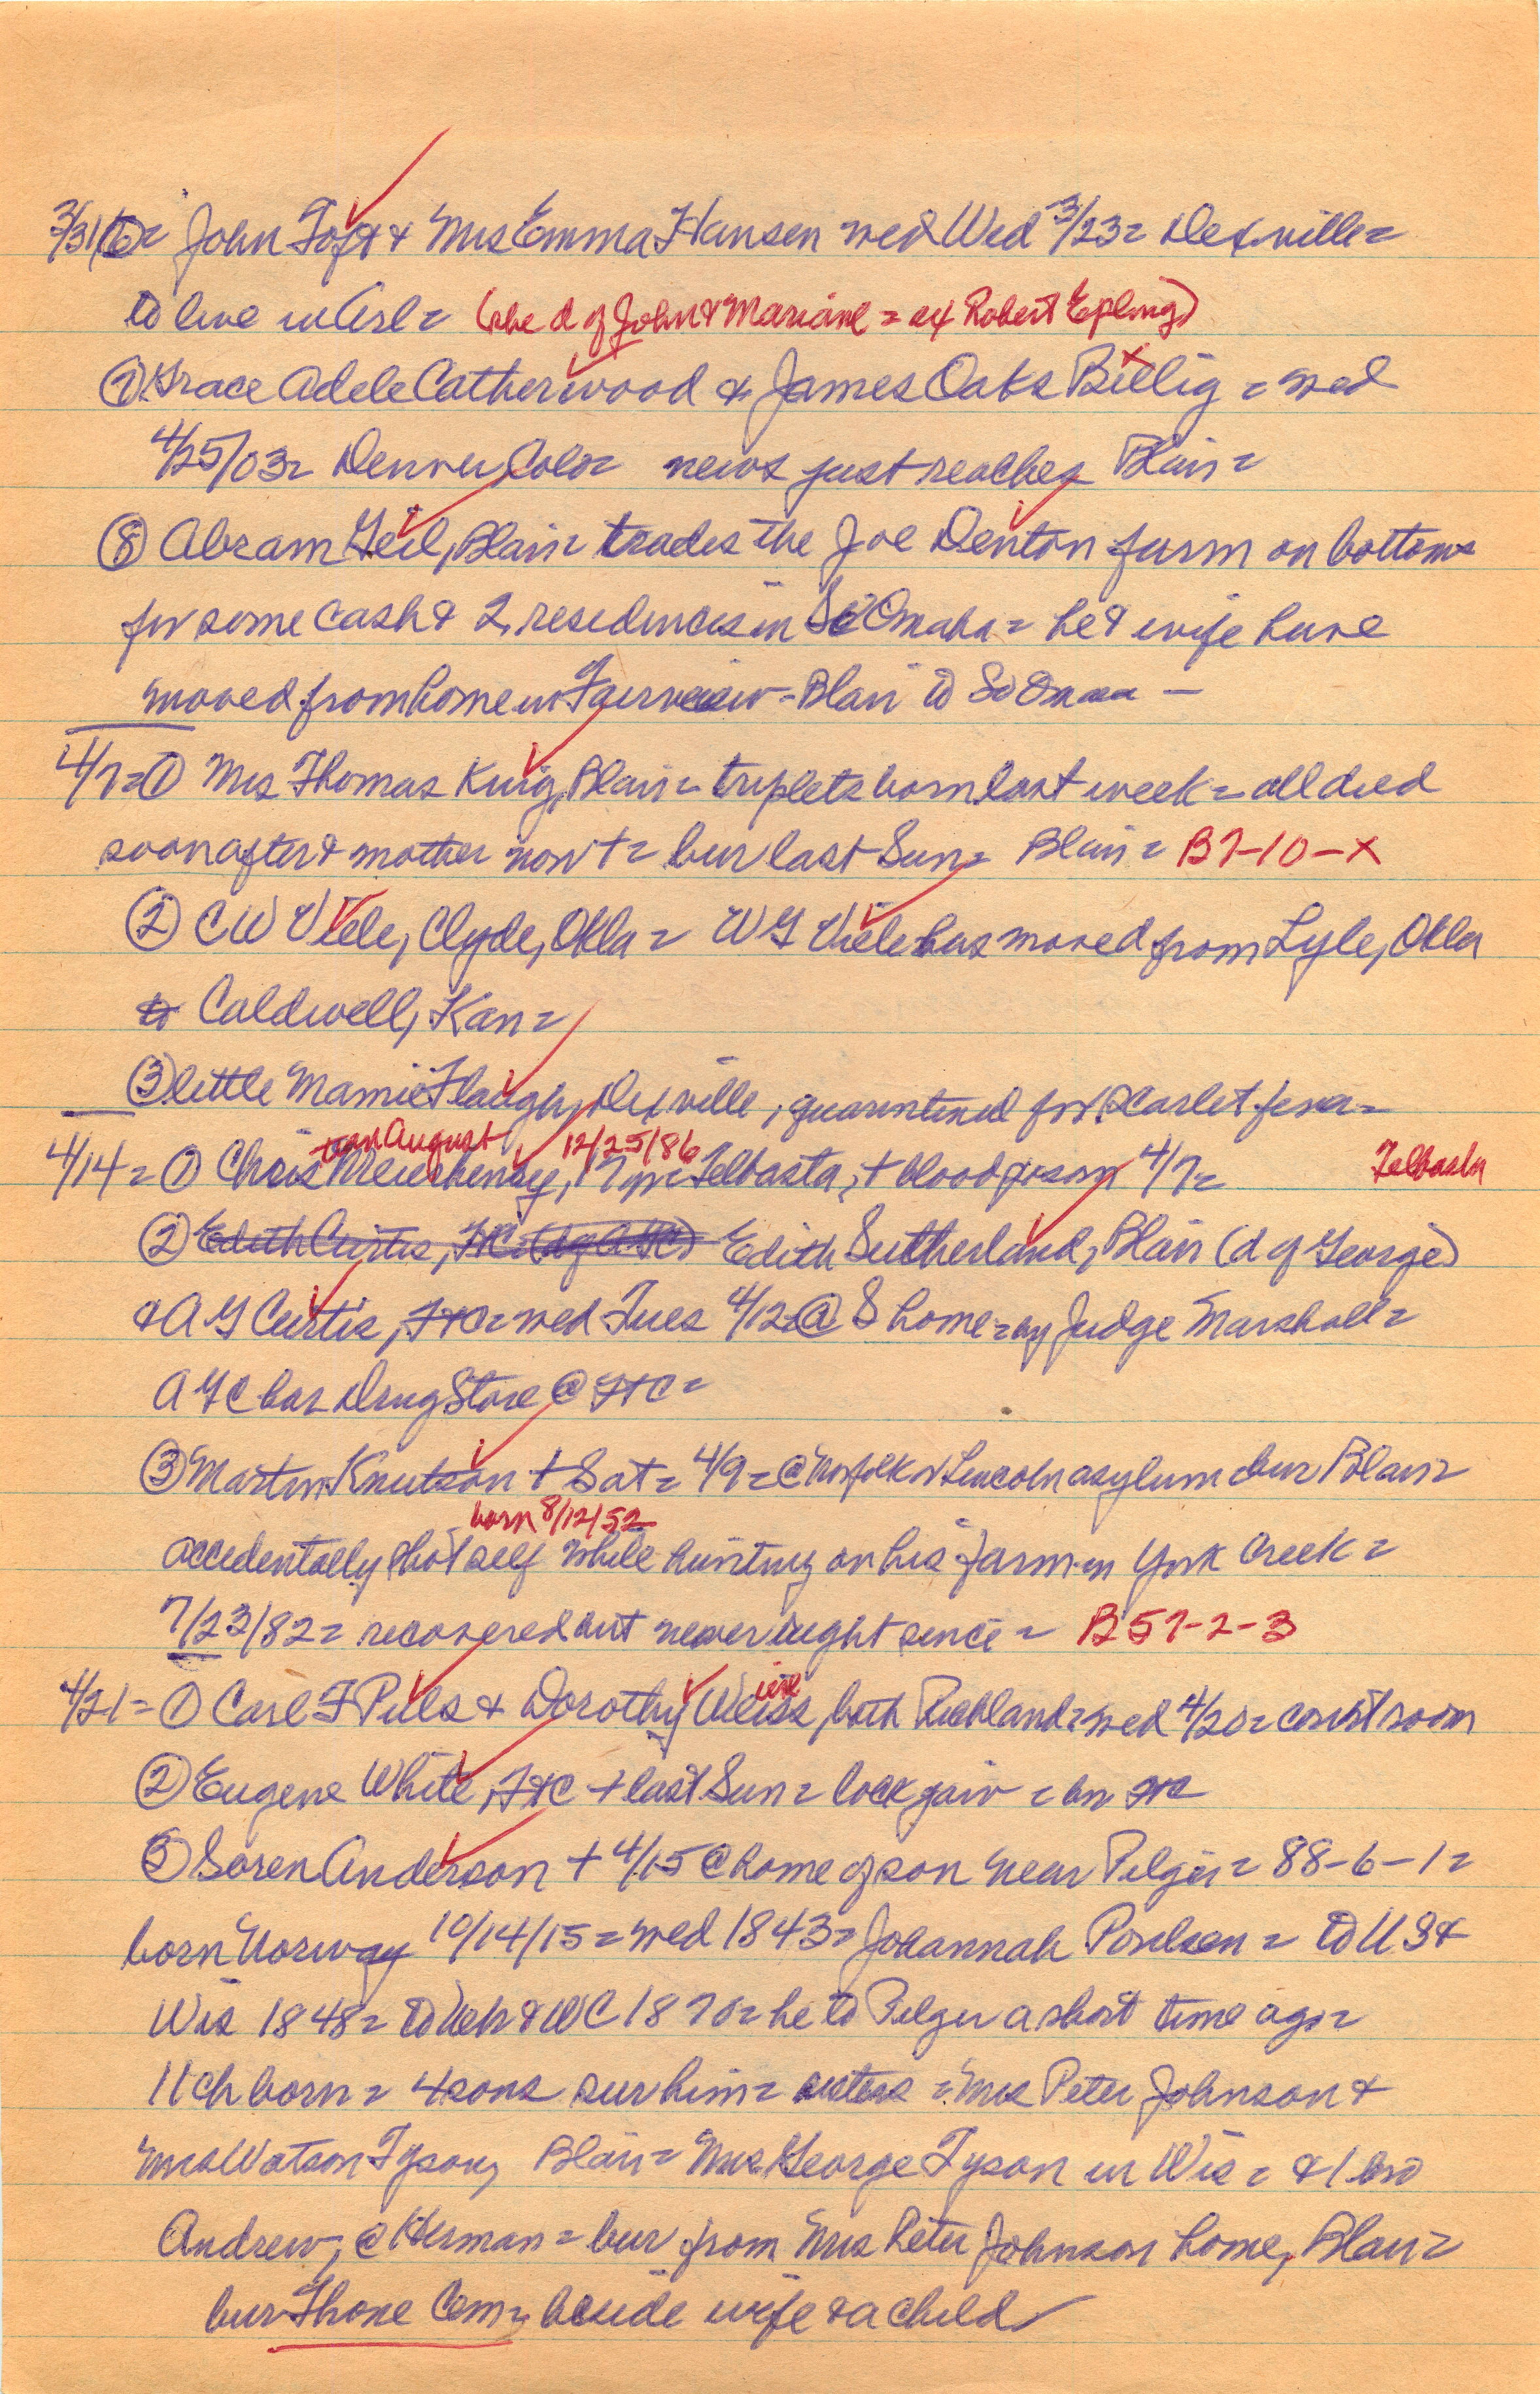 3/31/⑥= John Toft & Mrs Emma Hansen wed Wed 3/23= DeSville=
to live in Arl= (she d of John & Mariane = ex Robert Epling)
⑦ Grace Adele Catherwood & James Oaks Billig = wed
4/25/03= Denver, Colo= news just reaches Blair=
⑧ Abram Geil, Blair= trades the Joe Denton farm on bottoms
for some cash & 2 residences in So Omaha = he & wife have
moved from home in Fairview - Blair to So Omaa —
4/7=① Mrs Thomas King, Blair= triplets born last week = all died
soon after & mother now + = bur last Sun= Blair= B7-10-X
② C W Viele, Clyde, Okla = W G Viele has moved from Lyle, Okla
to Caldwell, Kan=
③ little Mamie Flaugh, DeSville, quarintined for scarlet fever=
son August 12/25/86
4/14=① Chris 17 yr= Telbasta, + blood poison 4/7= Telbasta
② Edith Curtis, FtC= (d of A G C) Edith Sutherland, Blair (d of George)
& A G Curtis, FtC= wed Tues 4/12= @ S home= by Judge Marshall=
A G C has Drug Store @ FtC=
③ Martin Knutson + Sat= 4/9= @ Norfolk or Lincoln asylum bur Blair=
born 8/12/52
accidentally shot self while hunting on his farm on York Creek =
7/23/82= recovered but never right since = B57-2-3
4/21=① Carl F Puls & Dorothy Weiss, both Richland= wed 4/20= court room
② Eugene White, FtC + last Sun= lock jaw = bur FtC
③ Soren Anderson + 4/15 @ home of son near Pilger= 88-6-1=
born Norway 10/14/15= wed 1843= Johannah Poulsen = to U S &
Wis 1848= to Neb & WC 1870= he to Pilger a short time ago=
11 ch born= 4 sons sur him= sisters = Mrs Peter Johnson &
Mrs Watson Tyson, Blair= Mrs George Tyson in Wis= & 1 bro
Andrew, @ Herman= bur from Mrs Peter Johnson home, Blair=
bur Thone Cem= beside wife & a child